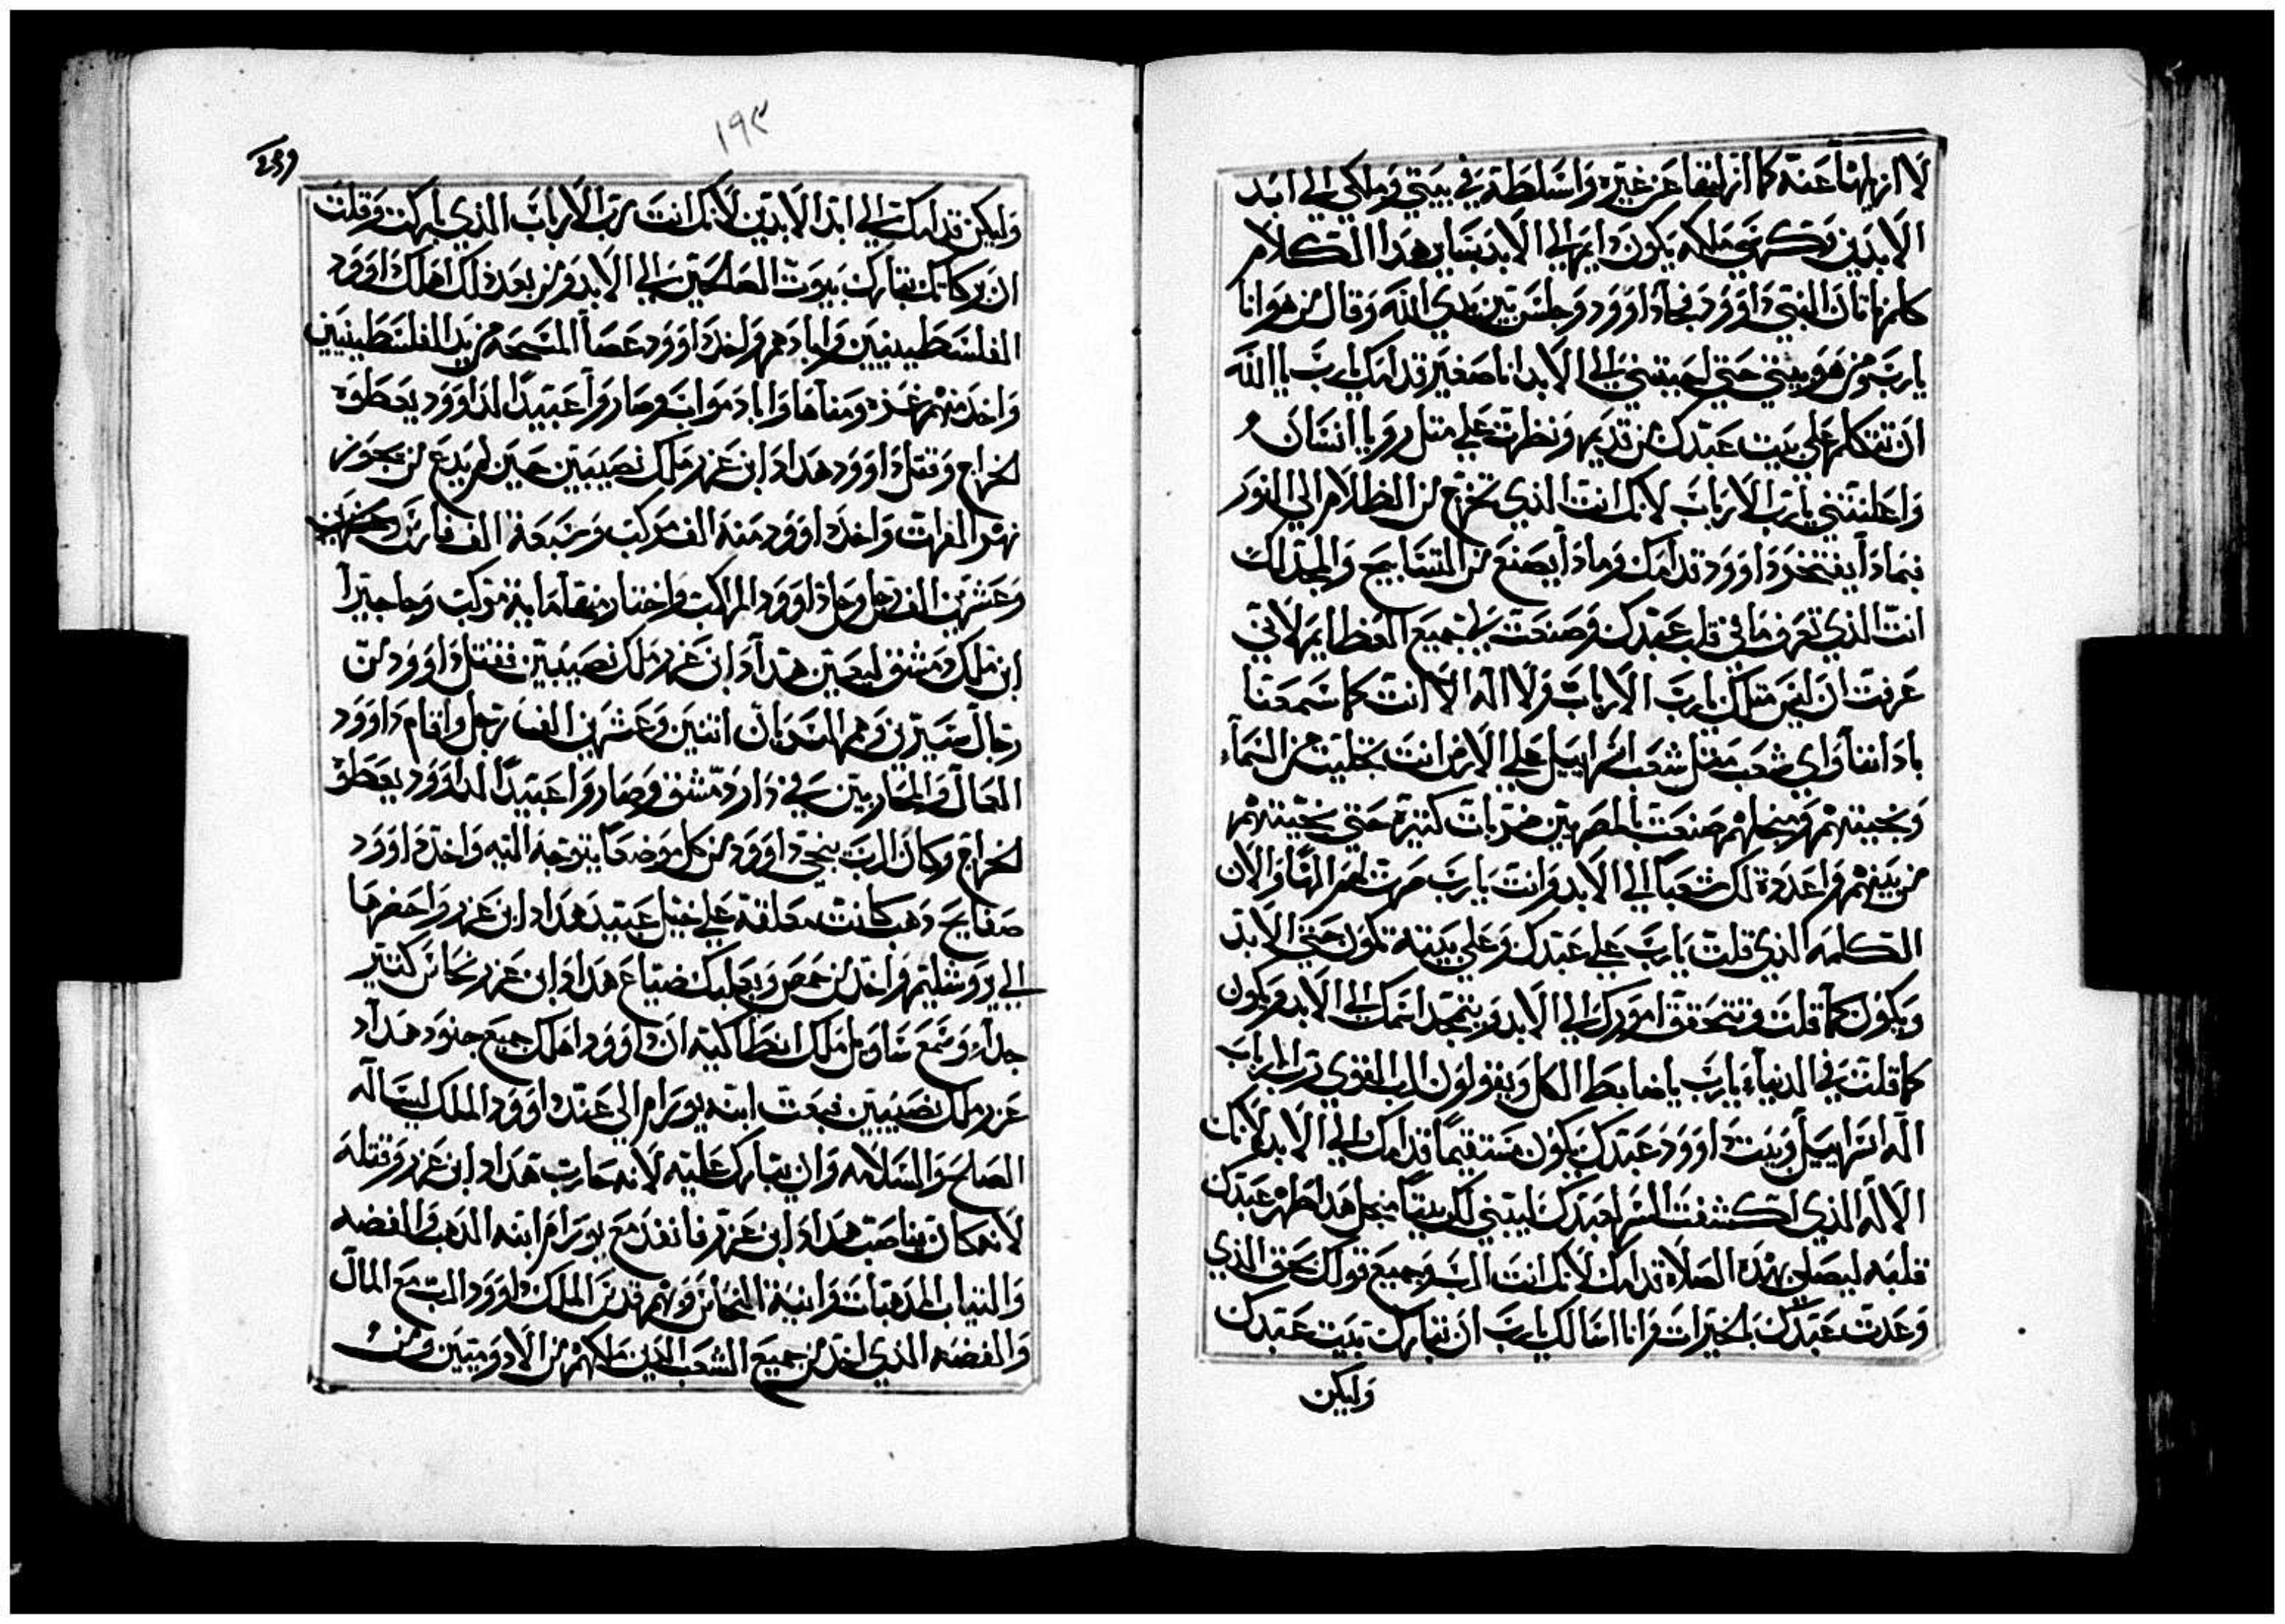 لا ازيلها عنه كما ازلتها عن غيره واسلطه في بيتي وملكي الي ابد
الابدين وكرسي ملكه يكون دايم الي الابد بساير هدا الكلام
كلم ناتان النبي داوود فجا داوود وجلس بين يدي الله وقال من هو انا
يارب ومن هو بيتي حتي احببتني الي الابد انا صغير قدامك يارب ياالله
ان تتكلم علي بيت عبدك من قديم ونظرت علي متل رويا انسان
واعلنتني يارب الارباب لانك انت الذي تخرج من الظلام الي النور
بمادا يفتخر داوود قدامك وما دا يصنع من التسابيح والمجد لك
انت الذي تعرف ما في قلب عبدك وصنعت لي جميع العظايم لاني
عرفت ان ليس متلك يارب الارباب ولا اله الا انت كما سمعنا
بادانا واي شعب متل شعب اسراييل علي الارض انت تجليت من السماء
ونجيتهم ومنجلهم صنعت بالمصريين ضربات كتيرة حتي نجيتهم
من بينهم واعدده لك شعبا الي الابد وانت يارب صرت لهم الها والان
الكلمه الذي قلت يارب علي عبدك وعلي بيته تكون حتي الابد
ويكون كما قلت وتتحقق امورك الي الابد ويتمجد اسمك الي الابد ويكون
كما قلت في الدنيا يارب يا ضابط الكل ويقولون الرب القوي رب الارباب
اله اسراييل وبيت داوود عبدك يكون مستقيما قدامك الي الابد لانك
الاله الذي كشفت السر لعبدك ليبني لك بيتا منجل هدا طهر عبدك
قلبه ليصلي بهده الصلاة قدامك لانك انت الرب وجميع قولك حق الذي
وعدت عبدك بالخيرات وانا اسالك يارب ان تبارك بيت عبدك
ولكن
١٩٢
ولكن قدامك الي ابد الابدين لانك انت رب الارباب الذي باركت وقلت
ان بركاتك تبارك بيوت الصالحين الي الابد ومن بعد ذلك اهلك داوود
الفلسطينيين وابادهم واخد داوود عصا المسحه من يد الفلسطينيين
واخد منهم غزه ومناها واباد مواب وصاروا عبيدا لداوود يعطوه
الخراج وقتل داوود هداد ابن عزر ملك نصيبين حين لم يدع من يجوز
نهر الفرات واخد داوود منه الف مركب وسبعة الف فارس
وعشرين الف رجل وحل داوود المراكب واختار منها ماية مركب وجا جيرا
ابن ملك دمشق ليعين هداد ابن عزر ملك نصيبين فقتل داوود من
رجال جبيرين وهم السريان اتنين وعشرين الف رجل واقام داوود
العمال والمحاربين في دار دمشق وصاروا عبيدا لداوود يعطوه
الخراج وكان الرب ينجي داوود من كل موضعا يتوجه اليه واخد داوود
صفايح دهب كانت معلقه علي خيل عبيد هداد ابن عزر واحضرها
الي يروشليم واخد من حمص وبعلبك ضياع هداد ابن عزر نحاس كتير
جداء وسمع شاول ملك انطاكيه ان داوود اهلك جميع جنود هداد
عزر ملك نصيبين فبعت ابنه يورام الي عند داوود الملك ليساله
الصلح والسلامه وان يبارك عليه لانه حارب هداد ابن عزر وقتله
لانه كان يناصب هداد ابن عزر فانفد مع يورام ابنه الدهب والفضه
والتياب المدهبات وانية النحاس وبهم قدس الملك داوود الرب مع المال
والفضه الذي اخد من جميع الشعب الذين ملكهم من الادوميين ومن